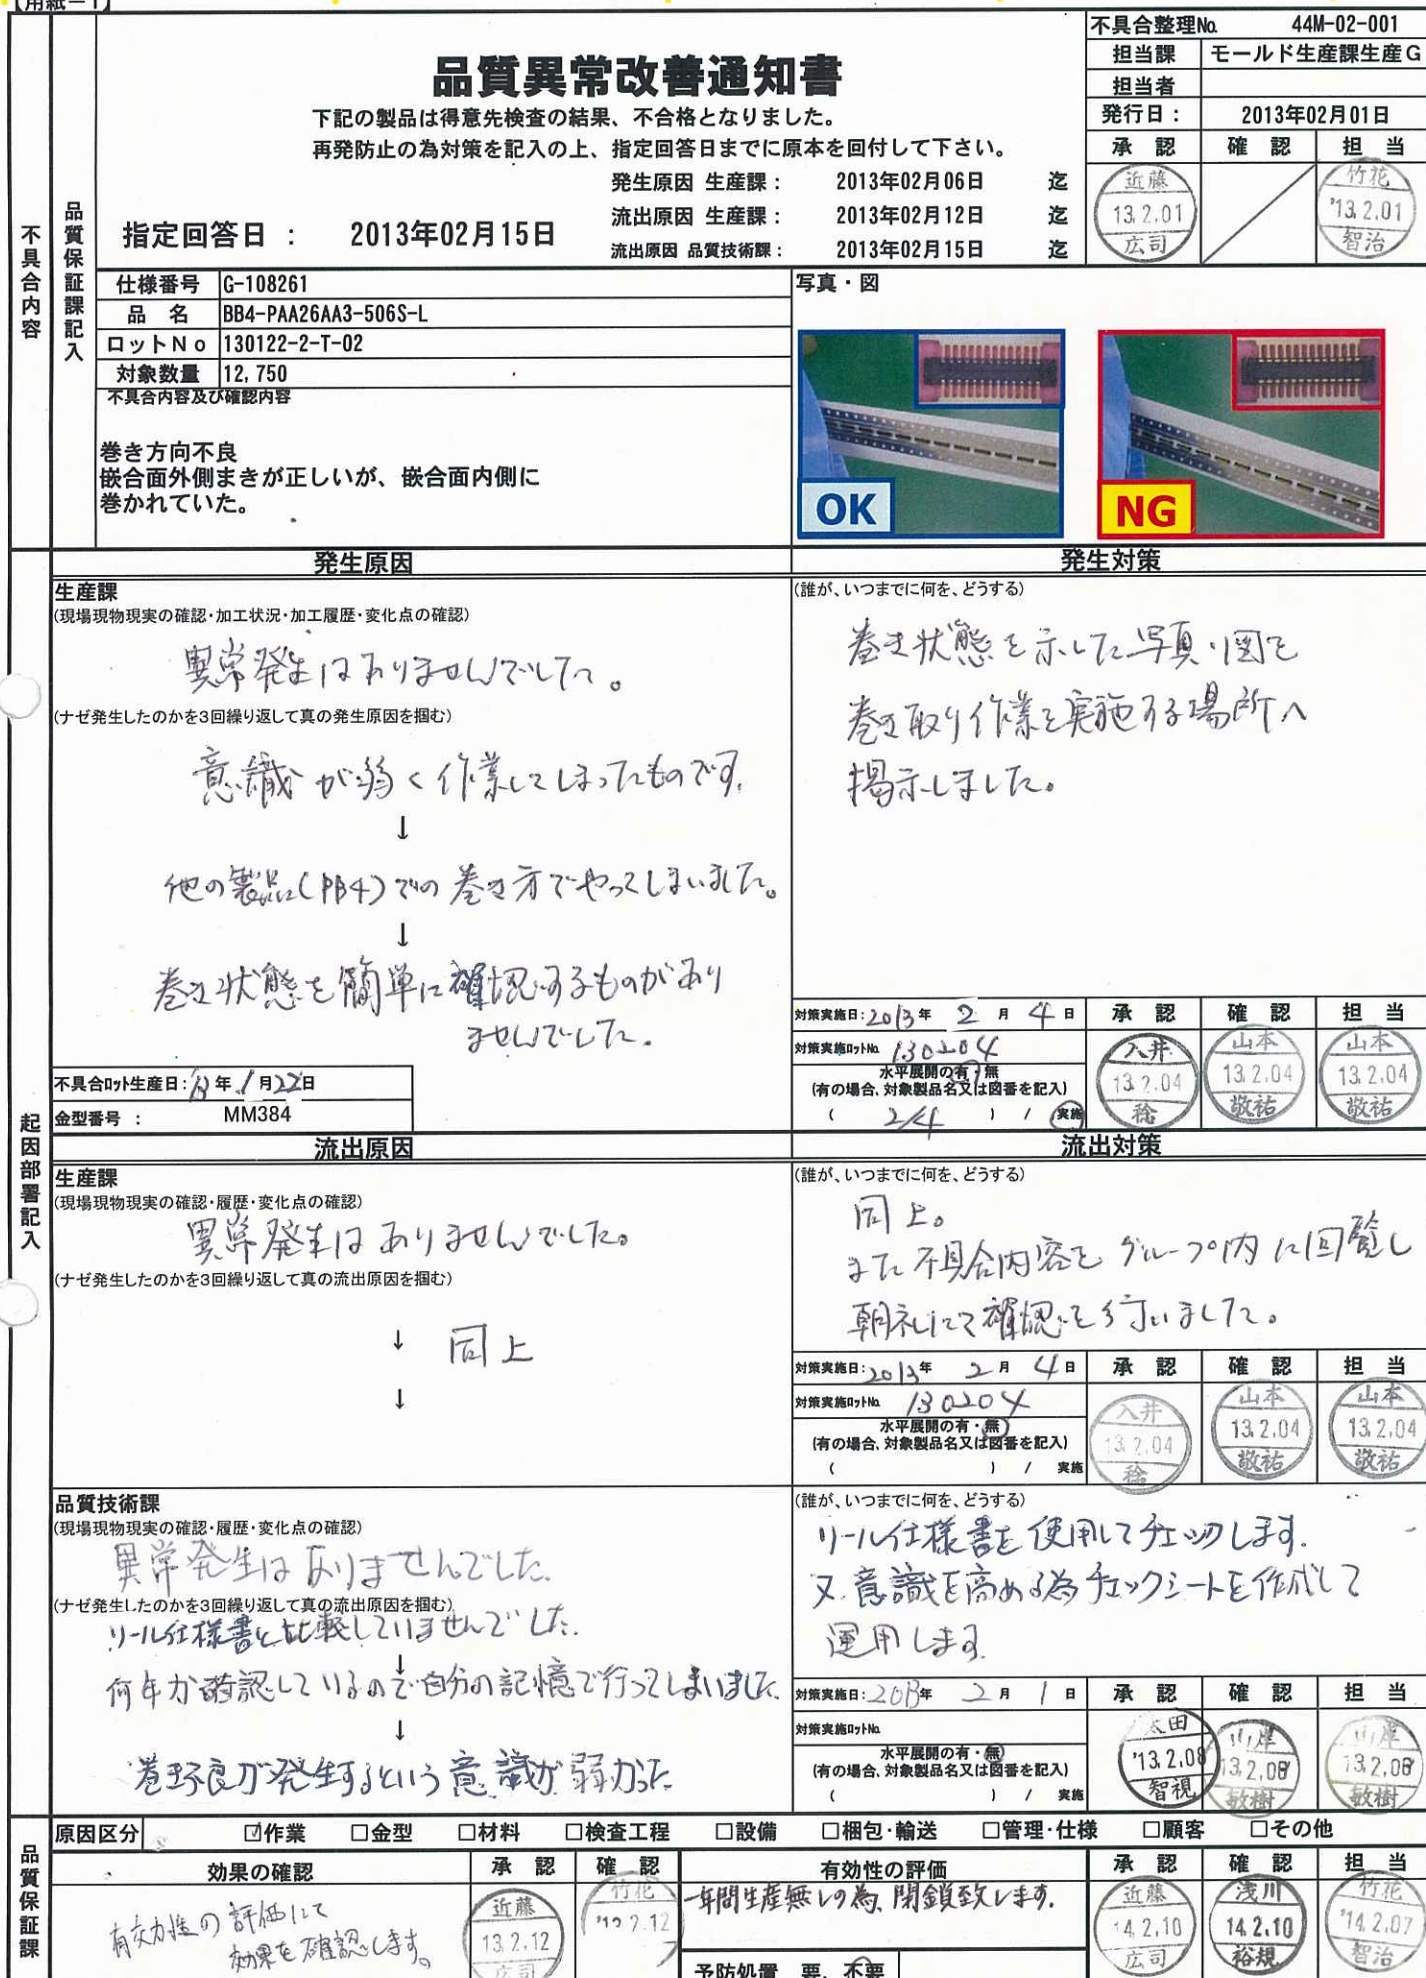 【用紙－1】
不具合整理No. 44M-02-001
担当課 モールド生産課生産G
担当者
発行日： 2013年02月01日
承認 確認 担当
近藤 13.2.01 広司
竹花 '13.2.01 智治
品質異常改善通知書
下記の製品は得意先検査の結果、不合格となりました。
再発防止の為対策を記入の上、指定回答日までに原本を回付して下さい。
発生原因 生産課： 2013年02月06日 迄
流出原因 生産課： 2013年02月12日 迄
流出原因 品質技術課： 2013年02月15日 迄
指定回答日 ： 2013年02月15日
不具合内容
品質保証課記入
仕様番号 G-108261
品名 BB4-PAA26AA3-506S-L
ロットNo 130122-2-T-02
対象数量 12,750
不具合内容及び確認内容
巻き方向不良
嵌合面外側まきが正しいが、嵌合面内側に
巻かれていた。
写真・図
OK
NG
起因部署記入
発生原因
生産課
(現場現物現実の確認・加工状況・加工履歴・変化点の確認)
異常発生はありませんでした。
(ナゼ発生したのかを3回繰り返して真の発生原因を掴む)
意識が弱く作業してしまったものです。
↓
他の製品(PB4)での巻き方でやってしまいました。
↓
巻き状態を簡単に確認するものがあり
ませんでした。
不具合ロット生産日：13年1月22日
金型番号： MM384
発生対策
(誰が、いつまでに何を、どうする)
巻き状態を示した写真・図を
巻き取り作業を実施する場所へ
掲示しました。
対策実施日：2013年 2月 4日
対策実施ロットNo. 130204
水平展開の有・無
(有の場合、対象製品名又は図番を記入)
( 2/4 ) / 実施
承認 確認 担当
入井 13.2.04 稔
山本 13.2.04 敬祐
山本 13.2.04 敬祐
流出原因
生産課
(現場現物現実の確認・履歴・変化点の確認)
異常発生はありませんでした。
(ナゼ発生したのかを3回繰り返して真の流出原因を掴む)
↓ 同上
↓
流出対策
(誰が、いつまでに何を、どうする)
同上。
また不具合内容をグループ内に回覧し
朝礼にて確認を行いました。
対策実施日：2013年 2月 4日
対策実施ロットNo. 130204
水平展開の有・無
(有の場合、対象製品名又は図番を記入)
( ) / 実施
承認 確認 担当
入井 13.2.04 稔
山本 13.2.04 敬祐
山本 13.2.04 敬祐
品質技術課
(現場現物現実の確認・履歴・変化点の確認)
異常発生はありませんでした。
(ナゼ発生したのかを3回繰り返して真の流出原因を掴む)
リール仕様書と比較していませんでした。
↓
何年か確認しているので自分の記憶で行ってしまいました
↓
巻き不良が発生するという意識が弱かった
(誰が、いつまでに何を、どうする)
リール仕様書を使用してチェックします。
又、意識を高める為チェックシートを作成して
運用します。
対策実施日：2013年 2月 1日
対策実施ロットNo.
水平展開の有・無
(有の場合、対象製品名又は図番を記入)
( ) / 実施
承認 確認 担当
太田 '13.2.08 智視
山岸 13.2.08 敏樹
山岸 13.2.08 敏樹
品質保証課
原因区分 ☑作業 □金型 □材料 □検査工程 □設備 □梱包・輸送 □管理・仕様 □顧客 □その他
効果の確認 承認 確認
有効性の評価にて
効果を確認します。
近藤 13.2.12 広司
竹花 2.12
有効性の評価 承認 確認 担当
一年間生産無しの為、閉鎖致します。
予防処置 要、不要
近藤 14.2.10 広司
浅川 14.2.10 裕規
竹花 '14.2.07 智治